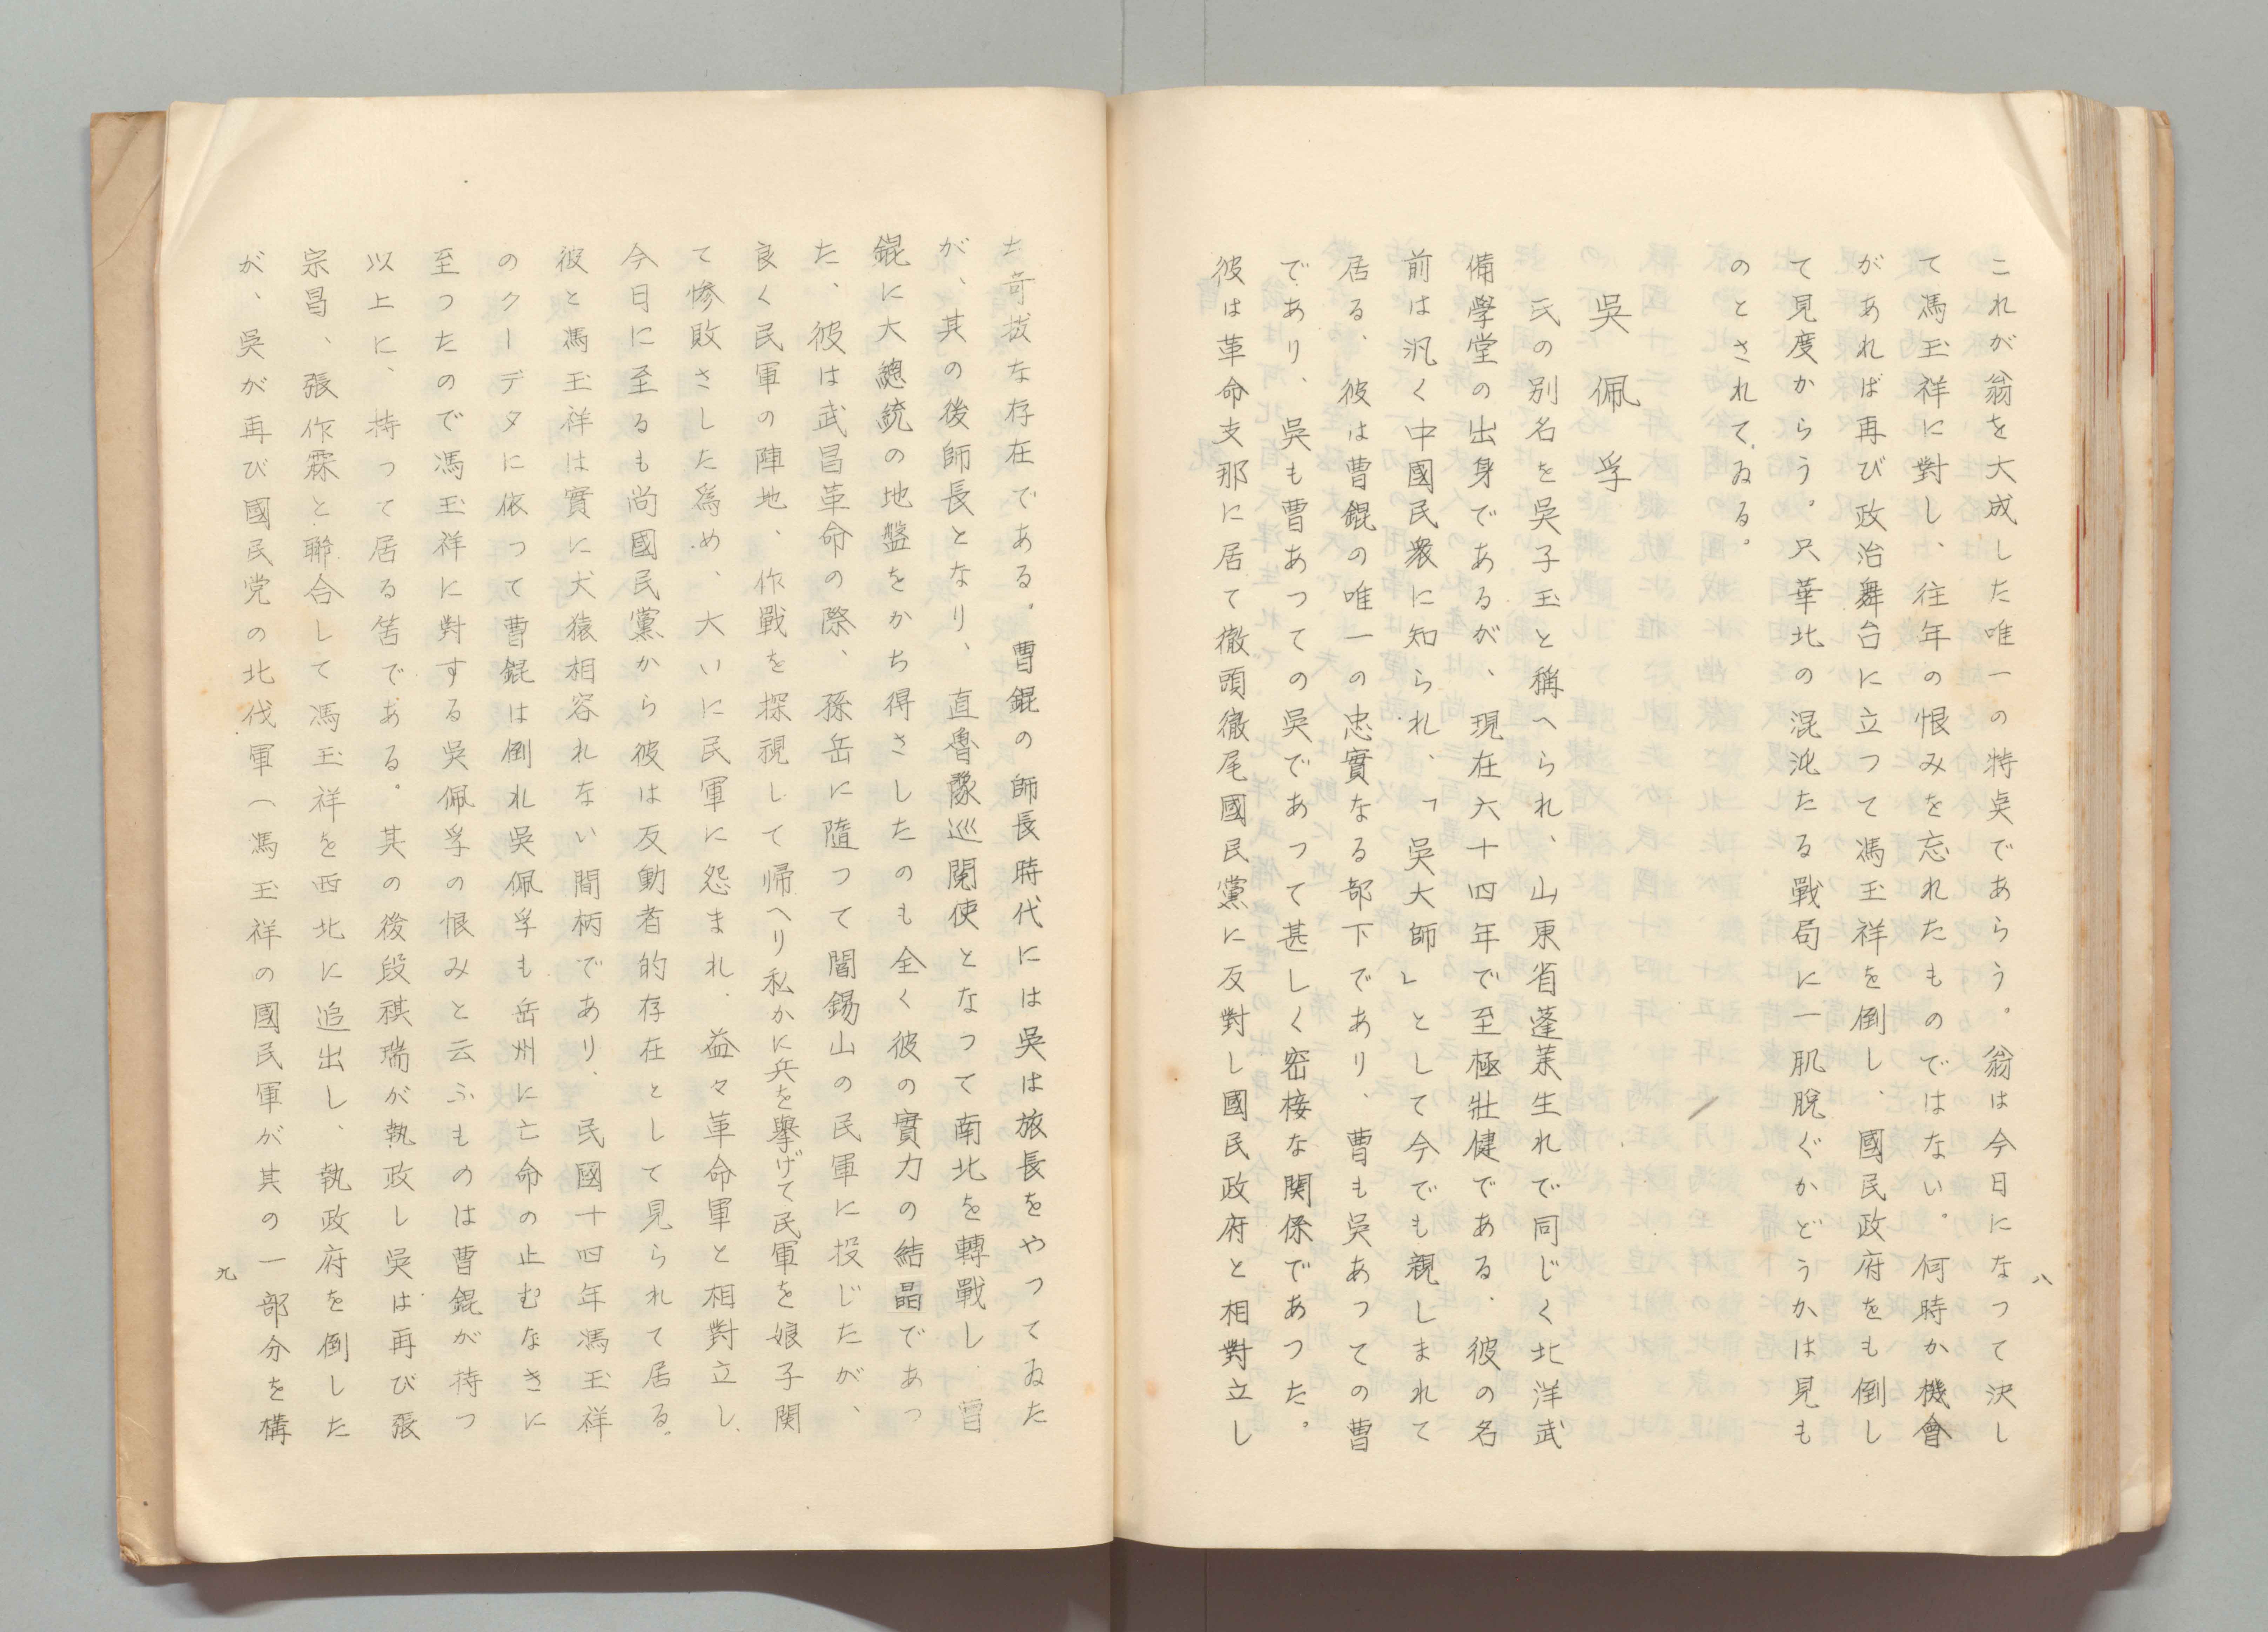 八
これが翁を大成した唯一の特奌であらう。翁は今日になつて決し
て馮玉祥に對し、往年の恨みを忘れたものではない。何時か機會
があれば再び政治舞台に立つて馮玉祥を倒し、國民政府をも倒し
て見度からう。只華北の混沌たる戰局に一肌脫ぐかどうかは見も
のとされてゐる。
吳佩孚
氏の別名を吳子玉と稱へられ、山東省蓬萊生れで同じく北洋武
備學堂の出身であるが、現在六十四年で至極壯健である、彼の名
前は汎く中國民衆に知られ、「吳大師」として今でも親しまれて
居る、彼は曹錕の唯一の忠實なる部下であり、曹も吳あつての曹
であり、吳も曹あつての吳であつて甚しく密接な関係であつた。
彼は革命支那に居て徹頭徹尾國民黨に反對し國民政府と相對立し
た奇拔な存在である。曹錕の師長時代には吳は旅長をやつてゐた
が、其の後師長となり、直魯豫巡閱使となつて南北を轉戰し、曹
錕に大總統の地盤をかち得さしたのも全く彼の實力の結晶であつ
た、彼は武昌革命の際、孫岳に隨つて閻錫山の民軍に投じたが、
良く民軍の陣地、作戰を探視して帰へり私かに兵を擧げて民軍を娘子関
て惨敗さした爲め、大いに民軍に怨まれ、益々革命軍と相對立し、
今日に至るも尚國民黨から彼は反動者的存在として見られて居る。
彼と馮玉祥は實に犬猿相容れない間柄であり、民國十四年馮玉祥
のクーデタに依つて曹錕は倒れ吳佩孚も岳州に亡命の止むなきに
至つたので馮玉祥に對する吳佩孚の恨みと云ふものは曹錕が持つ
以上に、持つて居る筈である。其の後段祺瑞が執政し吳は再び張
宗昌、張作霖と聯合して馮玉祥を西北に追出し、執政府を倒した
が、吳が再び國民党の北伐軍（馮玉祥の國民軍が其の一部分を構
九